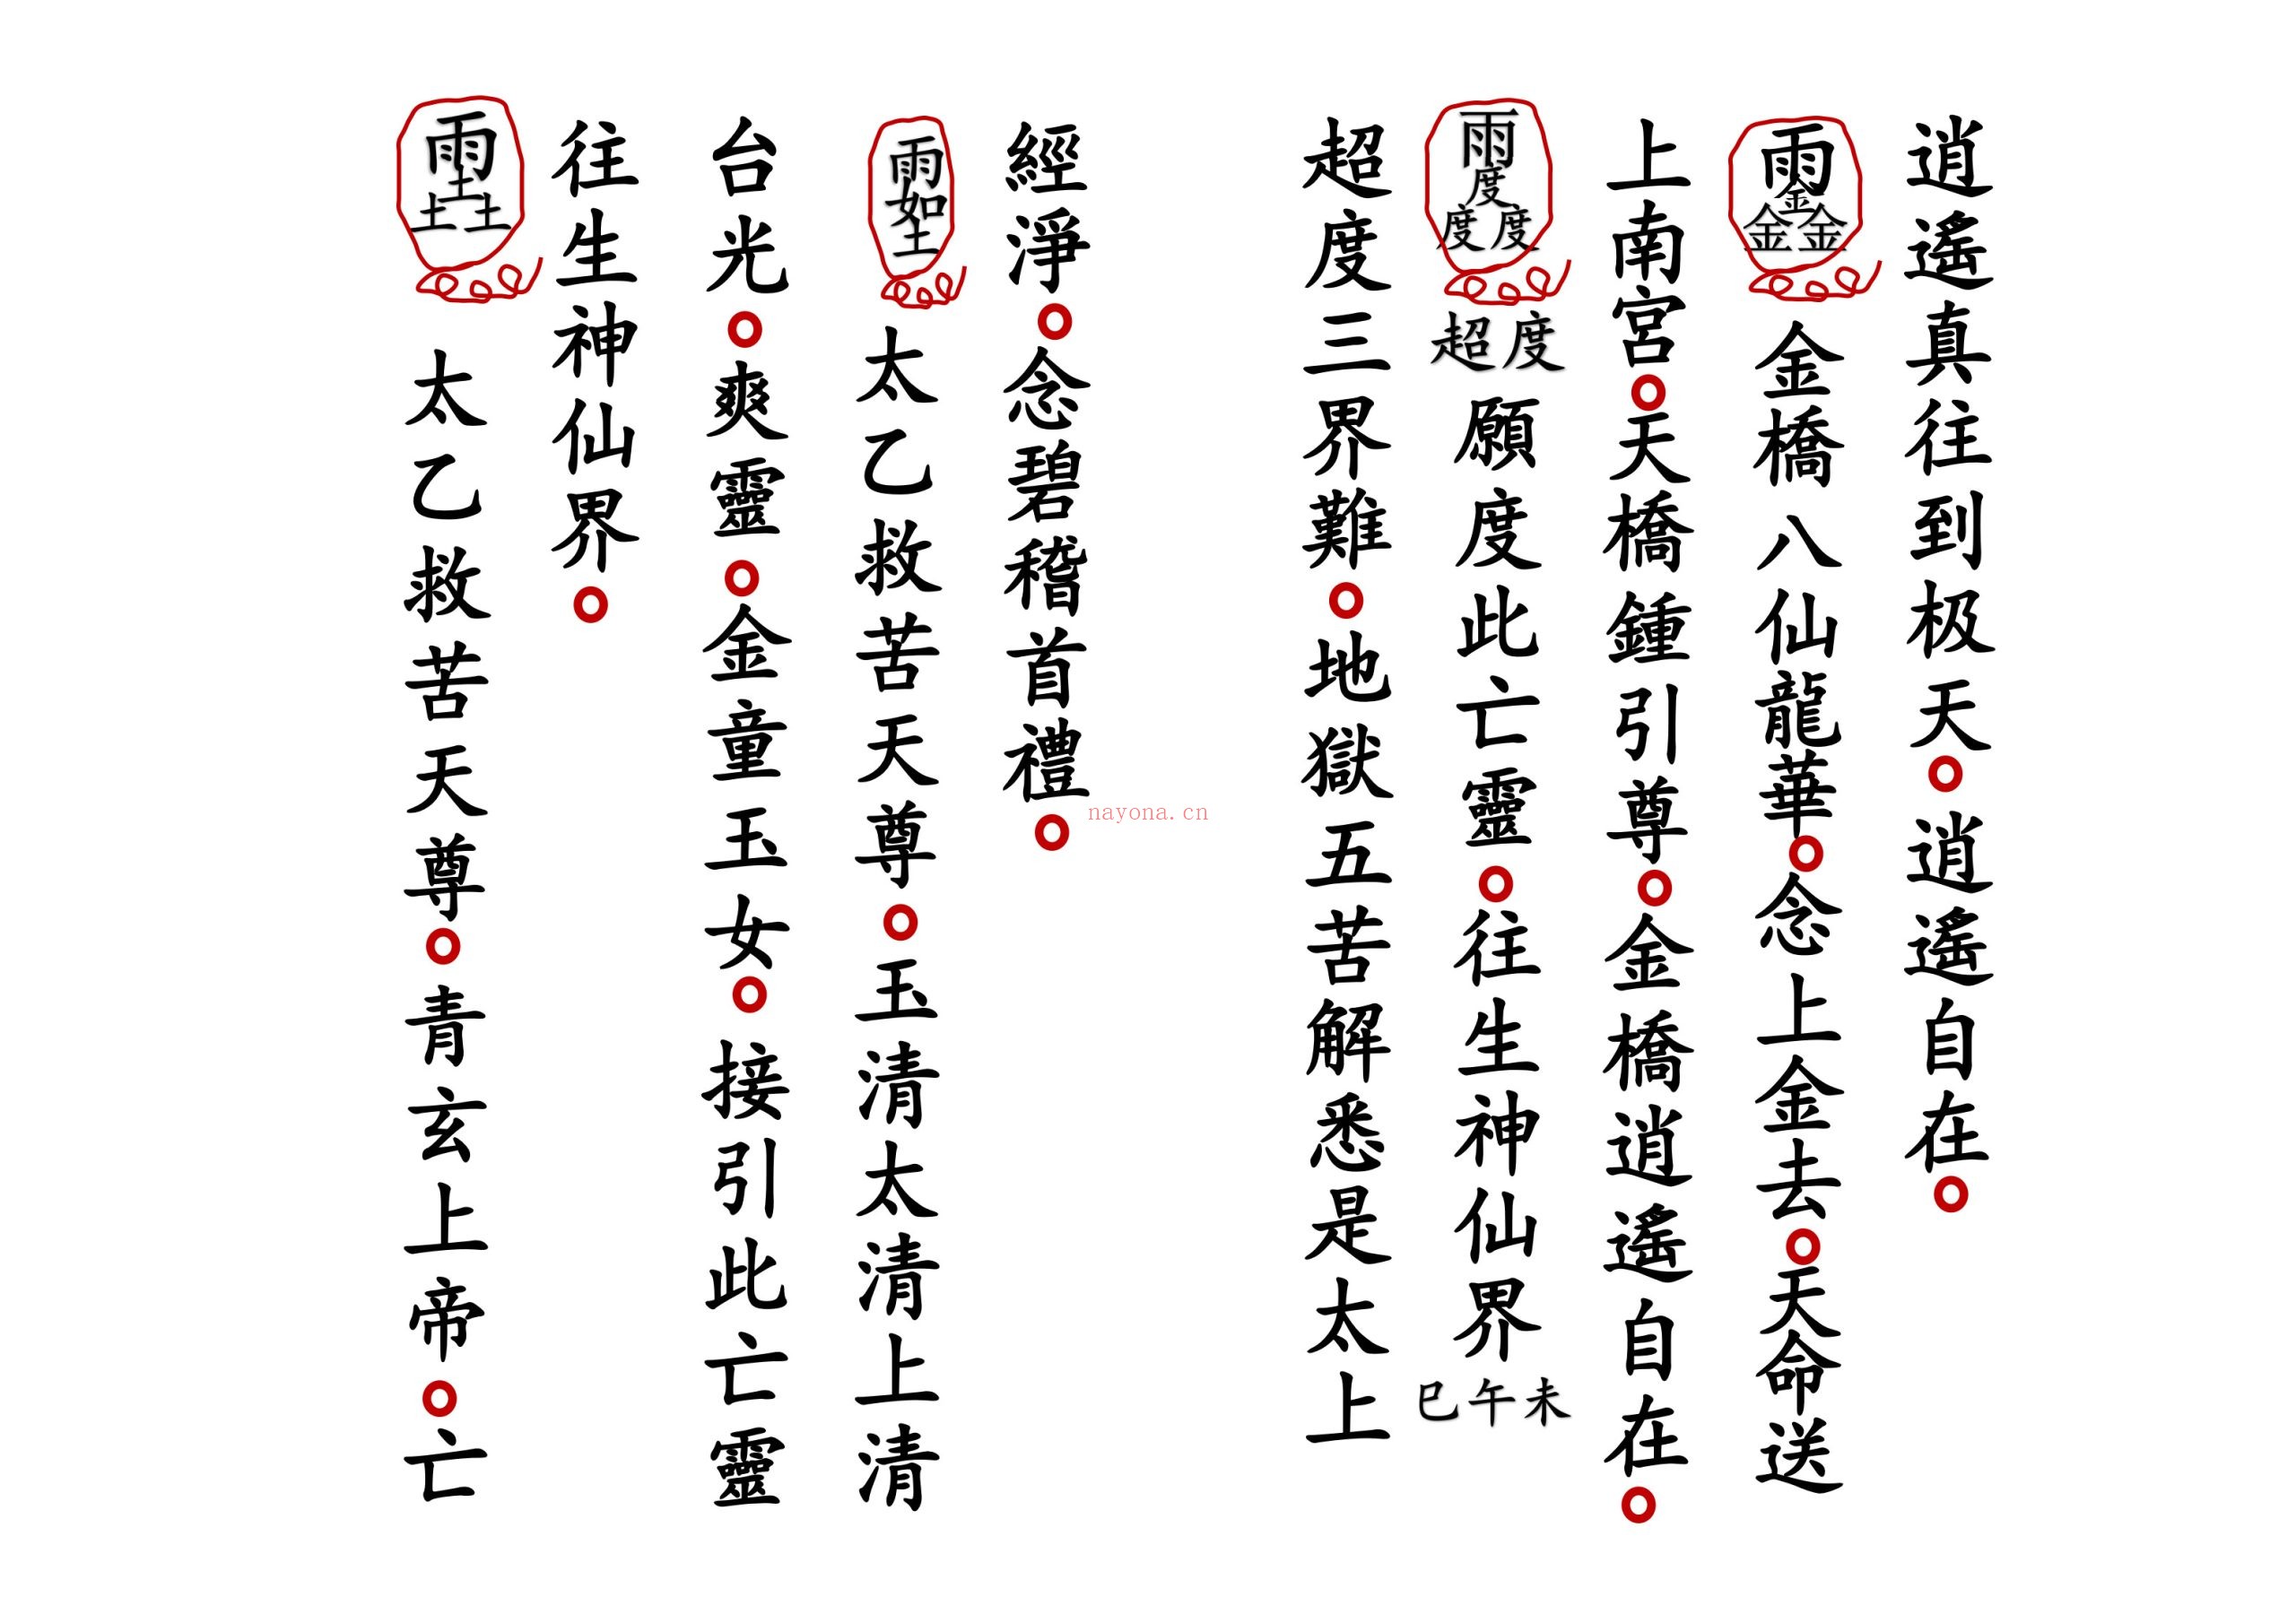 逍遙真往到极天。逍遙自在。
雨金金金 金橋八仙龍華。念上金去。天命送
上南宮。天橋鍾引尊。金橋逍遙自在。
雨度度度 超度 願度此亡靈。往生神仙界 巳午未
超度三界難。地獄五苦解悉是太上
經淨。念碧稽首禮。
雨如土 太乙救苦天尊。玉清太清上清
台光。爽靈。金童玉女。接引此亡靈
往生神仙界。
雨土土土 太乙救苦天尊。青玄上帝。亡
nayona.cn